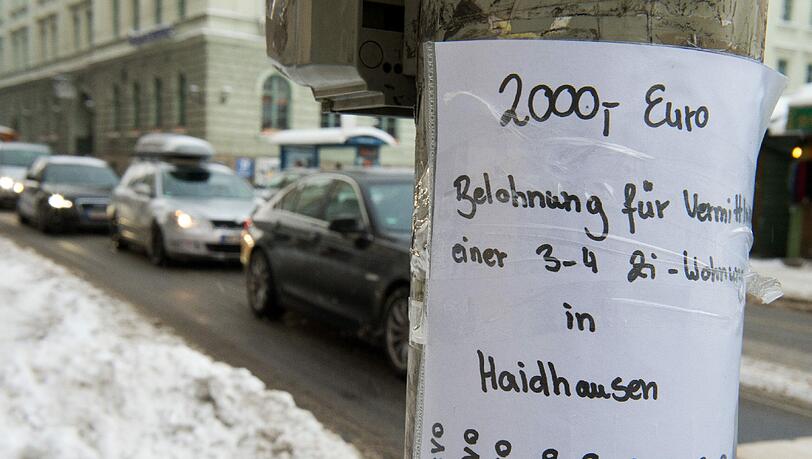 2000,- Euro
Belohnung für Vermittlu
einer 3-4 Zi-Wohnung
in
Haidhausen